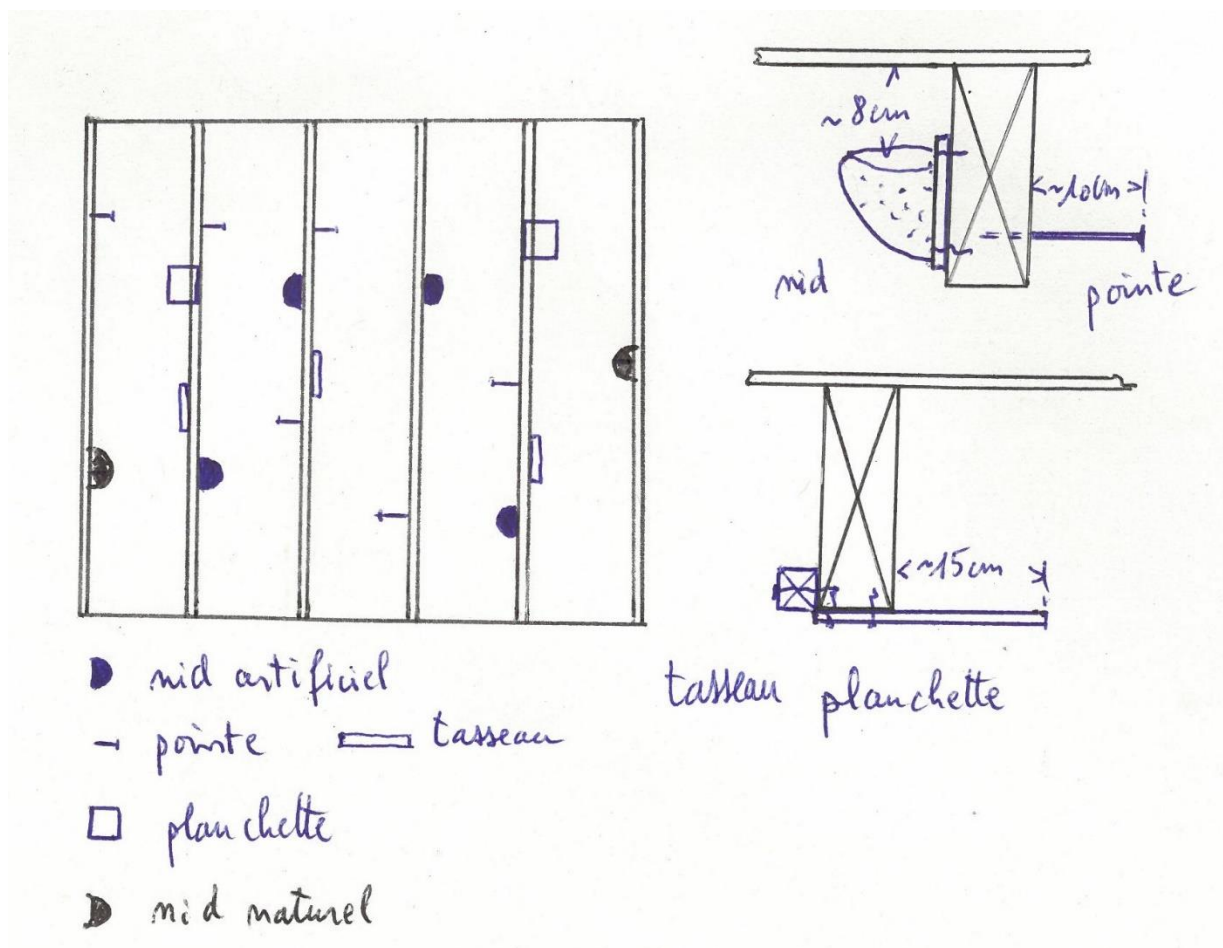 ~8cm
<~10cm>
nid
pointe
<~15cm>
tasseau planchette
nid artificiel
pointe
tasseau
planchette
nid naturel